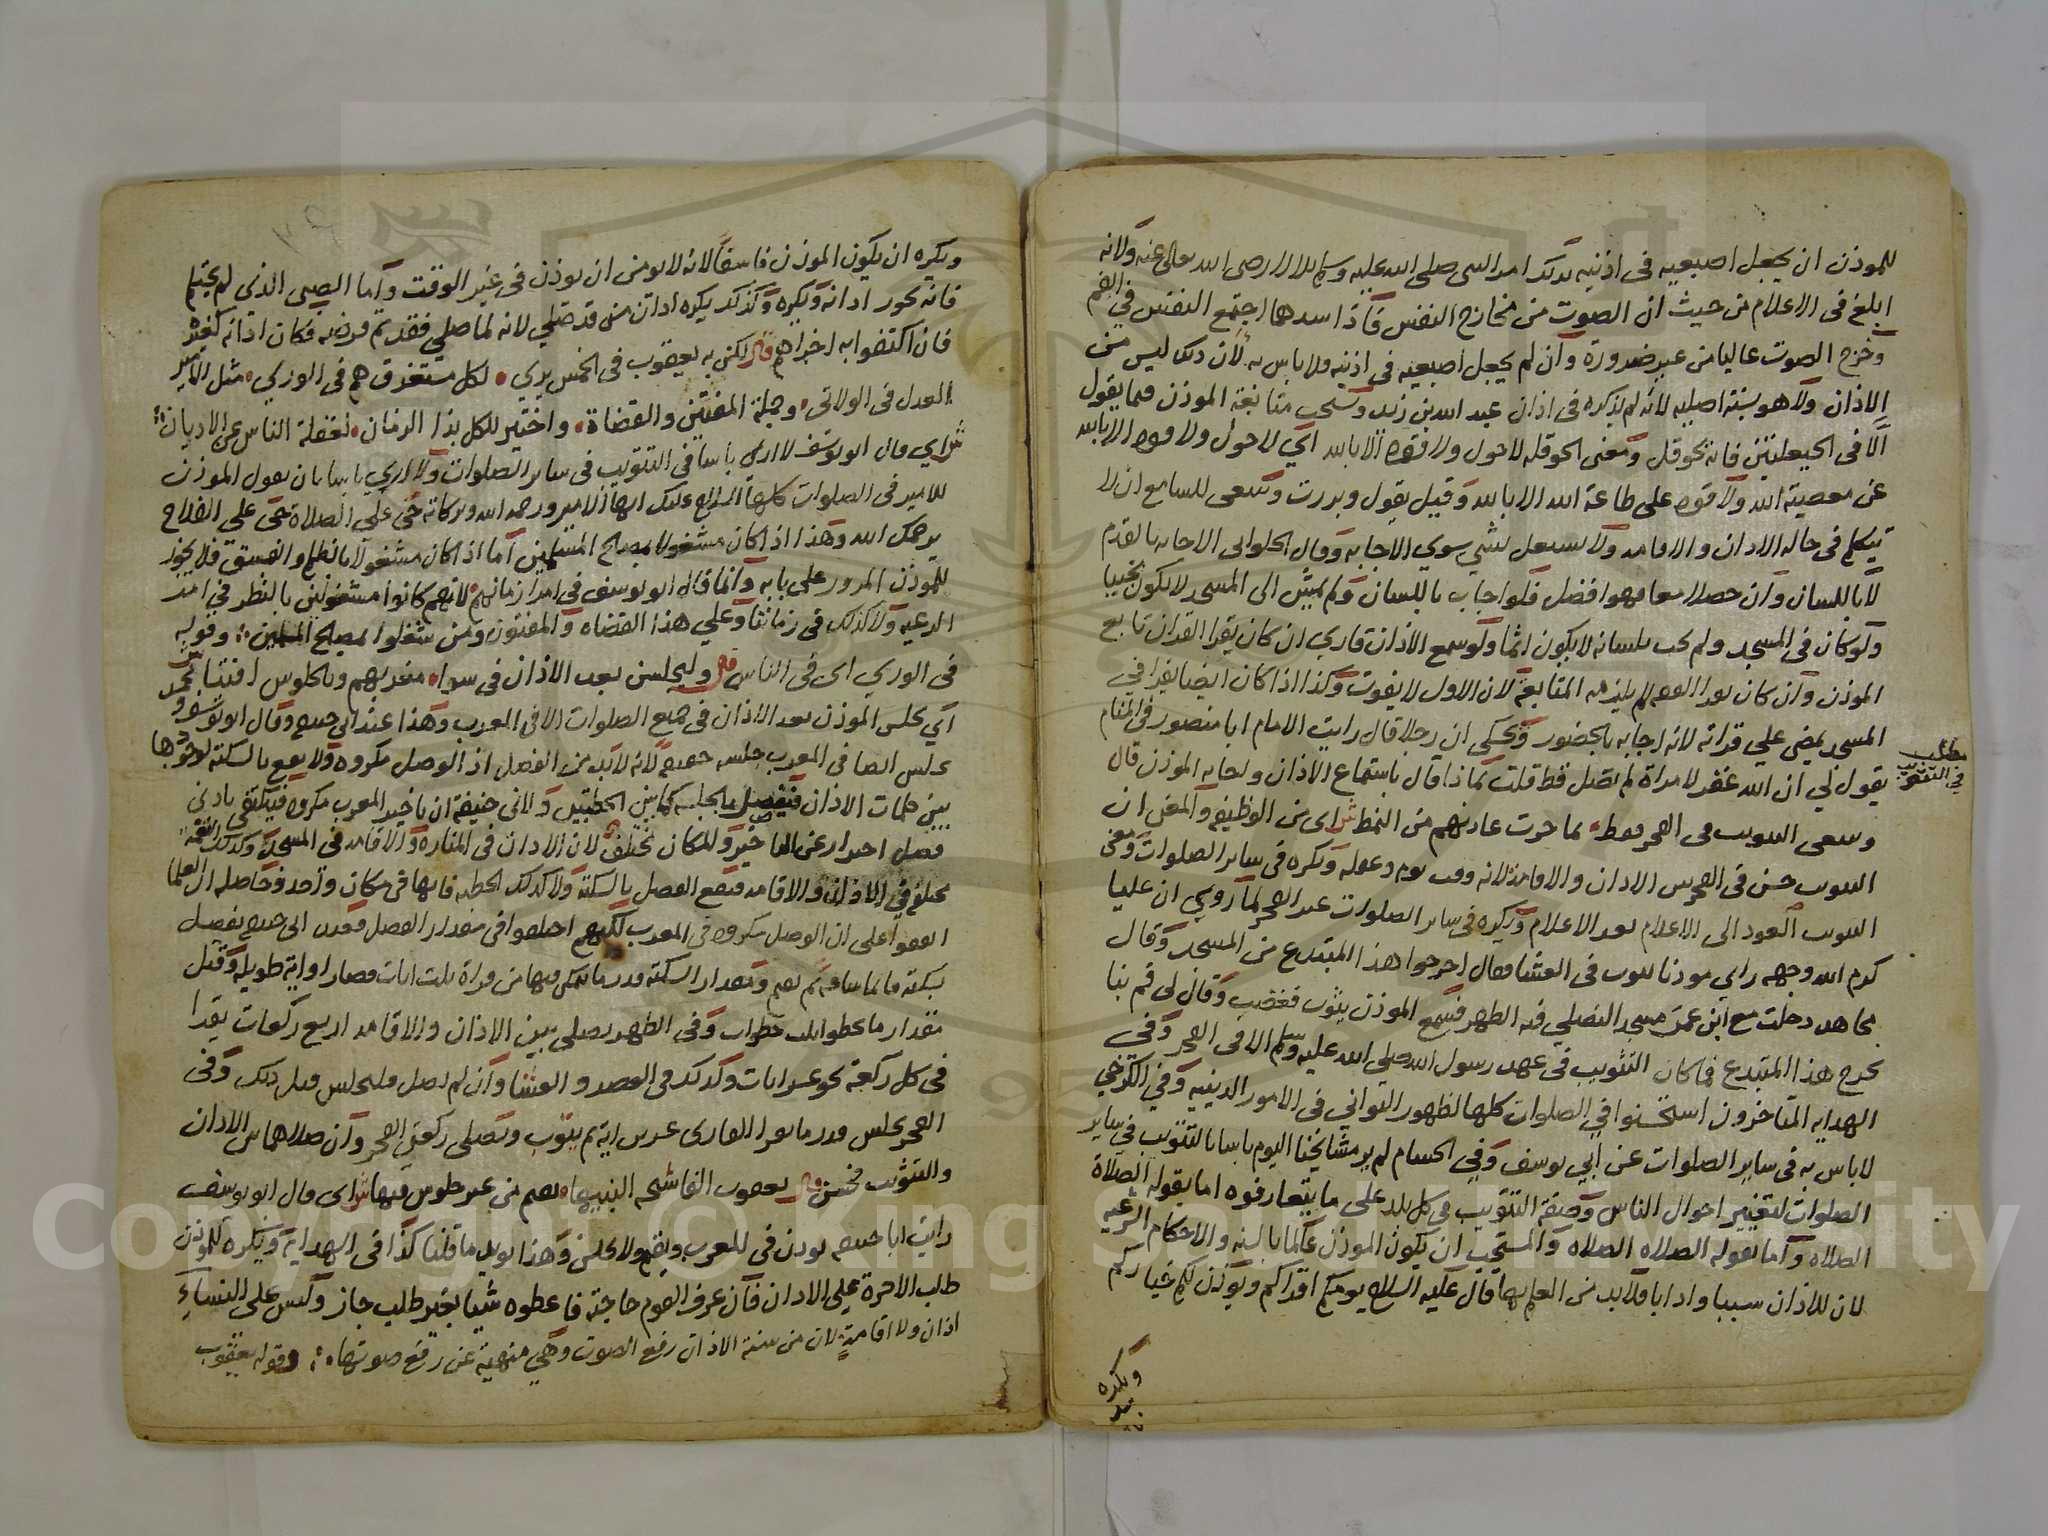 للموذن ان يجعل اصبعيه في اذنيه بذلك امر النبي صلى الله عليه وسلم بلالا رضي الله تعالى عنه ولانه
ابلغ في الاعلام من حيث ان الصوت من مخارج النفس فاذا سدهما اجتمع النفس في الفم
وخرج الصوت عاليا من غير ضرورة وان لم يجعل اصبعيه في اذنيه فلا باس به لان ذلك ليس من
الاذان ولا هو سنة اصلية لانه لم يذكره في اذان عبد الله بن زيد ويستحب متابعة الموذن فيما يقول
الا في الحيعلتين فانه يحوقل ومعنى الحوقله لاحول ولا قوة الا بالله اي لا حول ولا قوة الا بالله
عن معصية الله ولا قوة على طاعة الله الا بالله وقيل يقول وبررت وينبغي للسامع ان لا
يتكلم في حاله الاذان والاقامه ولا يشتغل بشي سوي الاجابه وقال الحلواني الاجابه بالقدم
لا باللسان وان حصلا معا فهو افضل فلو اجاب باللسان ولم يمش الى المسجد لا يكون مجيبا
ولو كان في المسجد ولم يجب بلسانه لا يكون اثما ولو سمع الاذان قاري ان كان يقرا القران تابع
الموذن وان كان يقرا الفقه لم يلزمه المتابعة لان الاول لا يفوت وكذا اذا كان ايضا يقرا في
المسجد يمضي علي قراته لانه اجابه بالحضور ويحكي ان رجلا قال رايت الامام ابا منصور في المنام
يقول لي ان الله غفر لامراة لم تصل قط قلت بماذا قال باستماع الاذان واجابه الموذن قال
مطلب
في التثويب
وينبغي التثويب في الفجر فقط بما جرت عادتهم من النمط ش اي من الوظيفه والمعنى ان
التثويب حسن في الفجر بين الاذان والاقامة لانه وقت نوم وغفله ويكره في ساير الصلوات ومعنى
التثويب العود الى الاعلام بعد الاعلام ويكره في ساير الصلوات غير الفجر لما روي ان عليا
كرم الله وجهه راي موذنا يثوب في العشا فقال اخرجوا هذا المبتدع من المسجد وقال
مجاهد دخلت مع ابن عمر مسجدا نصلي فيه الظهر فسمع الموذن يثوب فغضب وقال لي قم بنا
نخرج هذا المبتدع فما كان التثويب في عهد رسول الله صلى الله عليه وسلم الا في الفجر وفي
الهدايه المتاخرون استحسنوا في الصلوات كلها لظهور التواني في الامور الدينيه وفي الكرخي
لا باس به في ساير الصلوات عن ابي يوسف وفي الحسام لم ير مشايخنا اليوم باسا بالتثويب في ساير
الصلوات لتغيير احوال الناس وصفة التثويب في كل بلد على ما يتعارفوه اما بقوله الصلاة
الصلاه واما بقوله الصلاه الصلاه والمستحب ان يكون الموذن عالما بالسنه والاحكام الشرعيه
لان للاذان سننا وادابا فلا بد من العلم بها قال عليه السلام يومكم اقراكم ويوذن لكم خياركم
ويكره
ويكره ان يكون الموذن فاسقا لانه لا يومن ان يوذن في غير الوقت واما الصبي الذي لم يحتلم
فانه يجوز اذانه ويكره وكذلك يكره اذان من قد صلي لانه لما صلي فقد تم فرضه فكان اذانه لغيره
فان اكتفوا به اجزاهم قال لكن به يعقوب في الخمس يري لكل مستغرق هم في الوري مثل الامير
العدل في الولاة وجملة المفتين والقضاة واختير للكل بذا الزمان لغفلة الناس عن الاديان
ش اي قال ابو يوسف لا اري باسا في التثويب في ساير الصلوات ولا اري باسا بان يقول الموذن
للامير في الصلوات كلها السلام عليك ايها الامير ورحمه الله وبركاته حي علي الصلاة حي علي الفلاح
يرحمك الله وهذا اذا كان مشغولا بمصالح المسلمين اما اذا كان مشغولا بالظلم والفسق فلا يجوز
للموذن المرور علي بابه وانما قال ابو يوسف في امرا زمانهم لانهم كانوا مشغولين بالنظر في امر
الرعيه ولا كذلك في زماننا وعلي هذا القضاه والمفتون ومن شغلوا بمصالح المسلمين وقوله
في الوري اي في الناس قال وليجلسن بعد الاذان في سوا مغربهم وبالجلوس افتنا محمد
اي يجلس الموذن بعد الاذان في جميع الصلوات الا في المغرب وهذا عند ابي حنيفه وقال ابو يوسف
يجلس ايضا في المغرب جلسه خفيفة لانه لا بد من الفصل اذ الوصل مكروه ولا يقع بالسكتة لوجودها
بين كلمات الاذان فيفصل بالجلسه كما بين الخطبتين ولابي حنيفة ان تاخير المغرب مكروه فيكتفي بادنى
فصل احترازا عن التاخير والمكان مختلف لان الاذان في المنارة والاقامه في المسجد وكذلك النغمة
مختلف في الاذان والاقامه فيقع الفصل بالسكتة ولا كذلك الخطبه فانها في مكان واحد وحاصله ان العلما
اتفقوا على ان الوصل مكروه في المغرب لكنهم اختلفوا في مقدار الفصل فعند ابي حنيفه يفصل
بسكته قائما ساعة ثم يقيم ومقدار السكته قدر ما يتمكن فيها من قراة ثلث ايات قصار او اية طويلة وقيل
مقدار ما يخطو ثلث خطوات وفي الظهر يصلي بين الاذان والاقامه اربع ركعات يقرا
في كل ركعة نحو عشر ايات وكذلك في العصر والعشا وان لم يصل فليجلس قدر ذلك وفي
الفجر يجلس قدر ما يقرا القاري عشرين اية ثم يثوب ويصلي ركعتي الفجر وان صلاهما بين الاذان
والتثويب فحسن قال يعقوب الفا شيخه النبيها يقيم من غير جلوس فيها ش اي قال ابو يوسف
رايت ابا حنيفه يوذن في المغرب ويقيم ولا يجلس وهذا يويد ما قلنا كذا في الهداية ويكره للموذن
طالب الاجرة علي الاذان فان عرف القوم حاجته فاعطوه شيا بغير طلب جاز وليس على النساء
اذان ولا اقامة لان من سنة الاذان رفع الصوت وهي منهية عن رفع صوتها وقوله يعقوب
Copyright © King Saud University